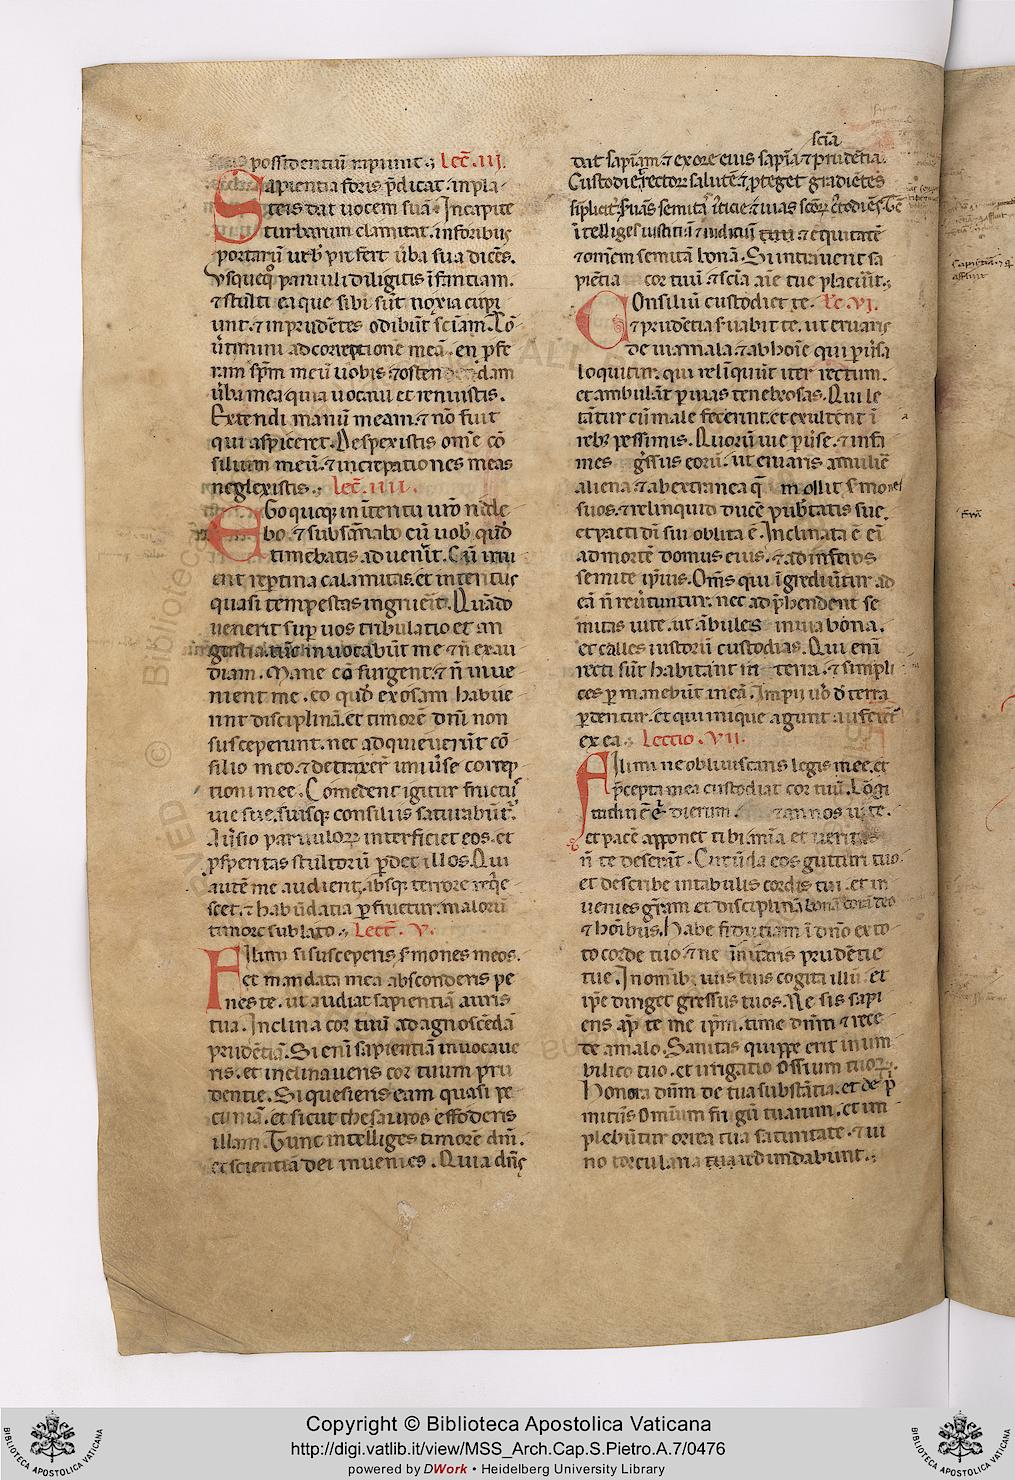 possidentiū rapiunt. Lec̄. III.
Sapientia foris p̄dicat. in pla-
teis dat uocem suā. In capite
turbarum clamitat. in foribus
portarū urb̾ ꝓfert ūba sua dicēs.
Vsquequo paruuli diligitis īfantiam.
⁊ stulti ea que sibi sūt noxia cupi
unt. ⁊ inprudētes odibūt sciām. Cō
ūtimini ad correptionē meā. en ꝓfe
ram sp̄m meū uobis ⁊ ostendam
ūba mea quia uocaui et renuistis.
Extendi manū meam. ⁊ nō fuit
qui aspiceret. Despexistis om̄e cō
silium meū. ⁊ increpationes meas
neglexistis. Lec̄. IIII.
Ego quoqꝫ in īteritu uro ride
bo. ⁊ subsānabo cū uob̾ quod
timebatis aduenīt. Cū irru
erit repētina calamitas. et interitus
quasi tempestas ingruerīt. Quādo
uenerit suꝑ uos tribulatio et an
gustia. tūc inuocabūt me ⁊ ñ exau
diam. Mane cōsurgent. ⁊ ñ inue
nient me. eo quod exosam habue
rint disciplinā. et timorē dn̄i non
susceperunt. nec adquieuerūt cō
silio meo. ⁊ detraxer̄ uniūse correp
tioni mee. Comedent igitur fructus
uie sue. suisqꝫ consiliis saturabūt̾.
Auersio paruulorꝝ interficiet eos. et
ꝓsperitas stultorū ꝑdet illos. Qui
autē me audient, absqꝫ terrore reqⁱe
scet. ⁊ habūdatia ꝑfruetur. malorū
timore sublato. Lect̄. V.
Fili mi si susceperis sermones meos.
et mandata mea absconderis pe
nes te. ut audiat sapientiā auris
tua. Inclina cor tuū ad agnoscēdā
prudētiā. Si enī sapientiā inuocaue
ris. et inclinaueris cor tuum pru
dentie. Si quesieris eam quasi pe
cuniā. et sicut thesauros effoderis
illam. Tunc intelliges timorē dn̄i.
et scientiā dei inuenies. Quia dn̄s
scīa
dat sapīam. ⁊ ex ore eius sapīa ⁊ prudētia.
Custodiet rectorꝝ salutē. ⁊ ꝓteget gradiētes
siplicit̾. Suās semitas iusticie ⁊ uias scōrꝝ custodiēs. Tc̄
ītelliges iusticiā ⁊ iudiciū ⁊ equitatē
⁊ om̄em semitā bonā. Si intrauerit sa
piētia cor tuū. ⁊ scīa aīe tue placuit.
Consiliū custodiet te. Lc̄. VI.
⁊ prudētia suabit te. ut eruaris
de uia mala. ⁊ ab hoīe qui ꝑuūsa
loquitur. qui relinquūt iter rectum.
et ambulāt ꝑ uias tenebrosas. Qui le
tātur cū male fecerint. et exultent ī
rebꝫ pessimis. Quorū uie ꝑuūse. ⁊ infa
mes gssus eorū. ut eruaris a muliē
aliena. ⁊ ab extranea q̄ mollit smones
suos. ⁊ relinquid ducē pubtatis sue.
et pacti dī sui oblita ē. Inclinata ē eī
ad mortē domus eius. ⁊ ad inferos
semite ipsius. Om̄s qui īgrediūtur ad
eā ñ reūtuntur. nec adphendent se
mitas uite. ut ābules in uia bona.
et calles iustorū custodias. Qui enī
recti sūt habitāt in terra. ⁊ simpli
ces ꝑmanebūt in eā. Impii uō d̄ terra
ꝑdentur. et qui inique agunt auferēt̾
ex ea. Lectio. VII.
Fili mi ne obliuiscaris legis mee. et
p̄cepta mea custodiat cor tuū. Lōgi
tudinē ē dierum annos uite.
et pacē apponet tibi. mīa et ueritas
ñ te deserūt. Circūda eos gutturi tuo.
et describe in tabulis cordis tui. et in
uenies gr̄am et disciplinā bonā corā deo
⁊ hoībus. Habe fiduciam ī dn̄o ex to
to corde tuo. ⁊ ne īnitaris prudētie
tue. In omib̾ uiis tuis cogita illū. et
ip̄e diriget gressus tuos. Ne sis sapi
ens ap̄ te me ip̄m. time dn̄m ⁊ rece
de a malo. Sanitas quippe erit in um
bilico tuo. et irrigatio ossium tuorꝝ.
Honora dn̄m de tua substātia. et de p̄
mitiis omium frugū tuarum. et im
plebūtur orrea tua saturitate. ⁊ ui
no torcularia tua redundabunt.
Copyright © Biblioteca Apostolica Vaticana
http://digi.vatlib.it/view/MSS_Arch.Cap.S.Pietro.A.7/0476
powered by DWork • Heidelberg University Library
BIBLIOTECA APOSTOLICA VATICANA
BIBLIOTECA APOSTOLICA VATICANA